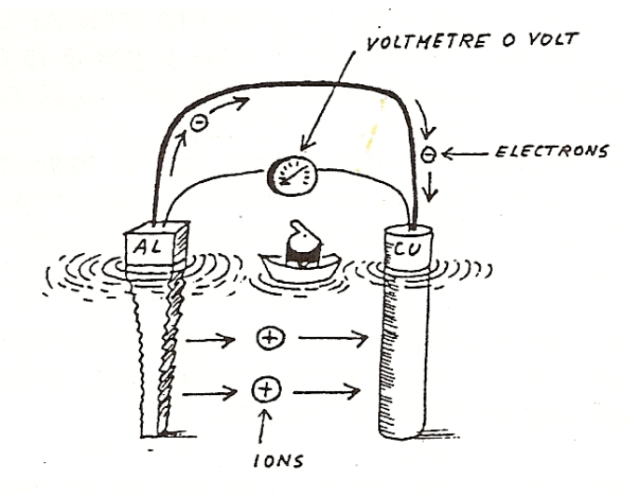 VOLTMETRE O VOLT
ELECTRONS
AL
CU
IONS